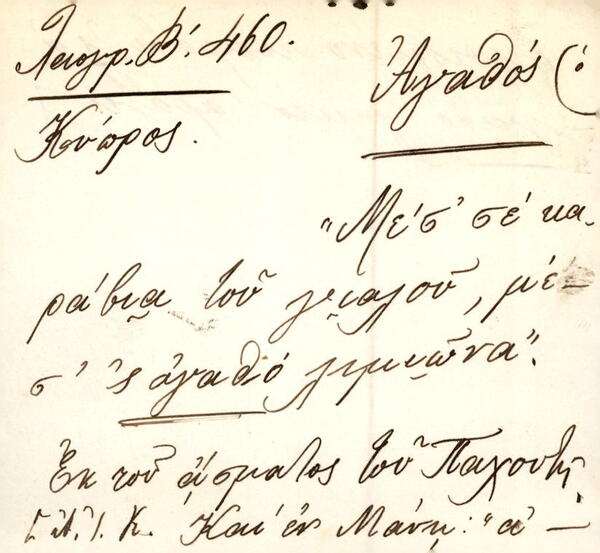 Λαογρ. Β'. 460.
Ἀγαθός (ὁ
Κύπρος.
"Μέσ' σέ κα-
ράβια τοῦ γιαλοῦ, μέ-
σ' 'ς ἀγαθό λιμιῶνα".
Ἐκ τοῦ ᾄσματος τοῦ
Κ. Καί ἐν Μάνῃ: "ἀ-